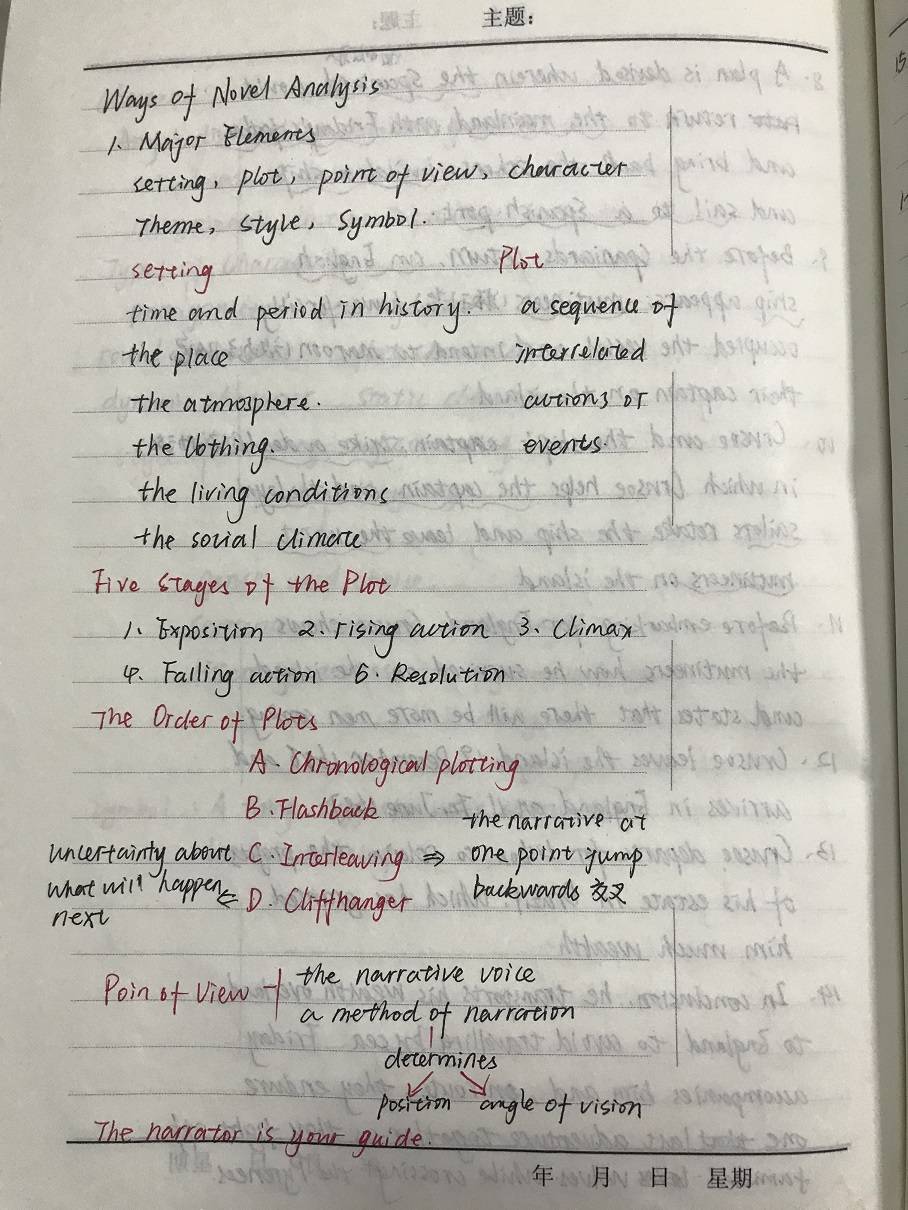 主题:
Ways of Novel Analysis
1. Major Elements
setting, plot, point of view, character
Theme, style, symbol.
setting
time and period in history.
the place
the atmosphere.
the clothing.
the living conditions
the social climate
Plot
a sequence of
interrelated
actions or
events.
Five stages of the Plot
1. Exposition 2. rising action 3. Climax
4. Falling action 5. Resolution
The Order of Plots
A. Chronological plotting
B. Flashback
C. Interleaving ⇒
the narrative at
one point jump
backwards 交叉
D. Cliffhanger
uncertainty about
what will happen ⇐
next
Poin of View
the narrative voice
a method of narration
determines
position angle of vision
The narrator is your guide.
年 月 日 星期